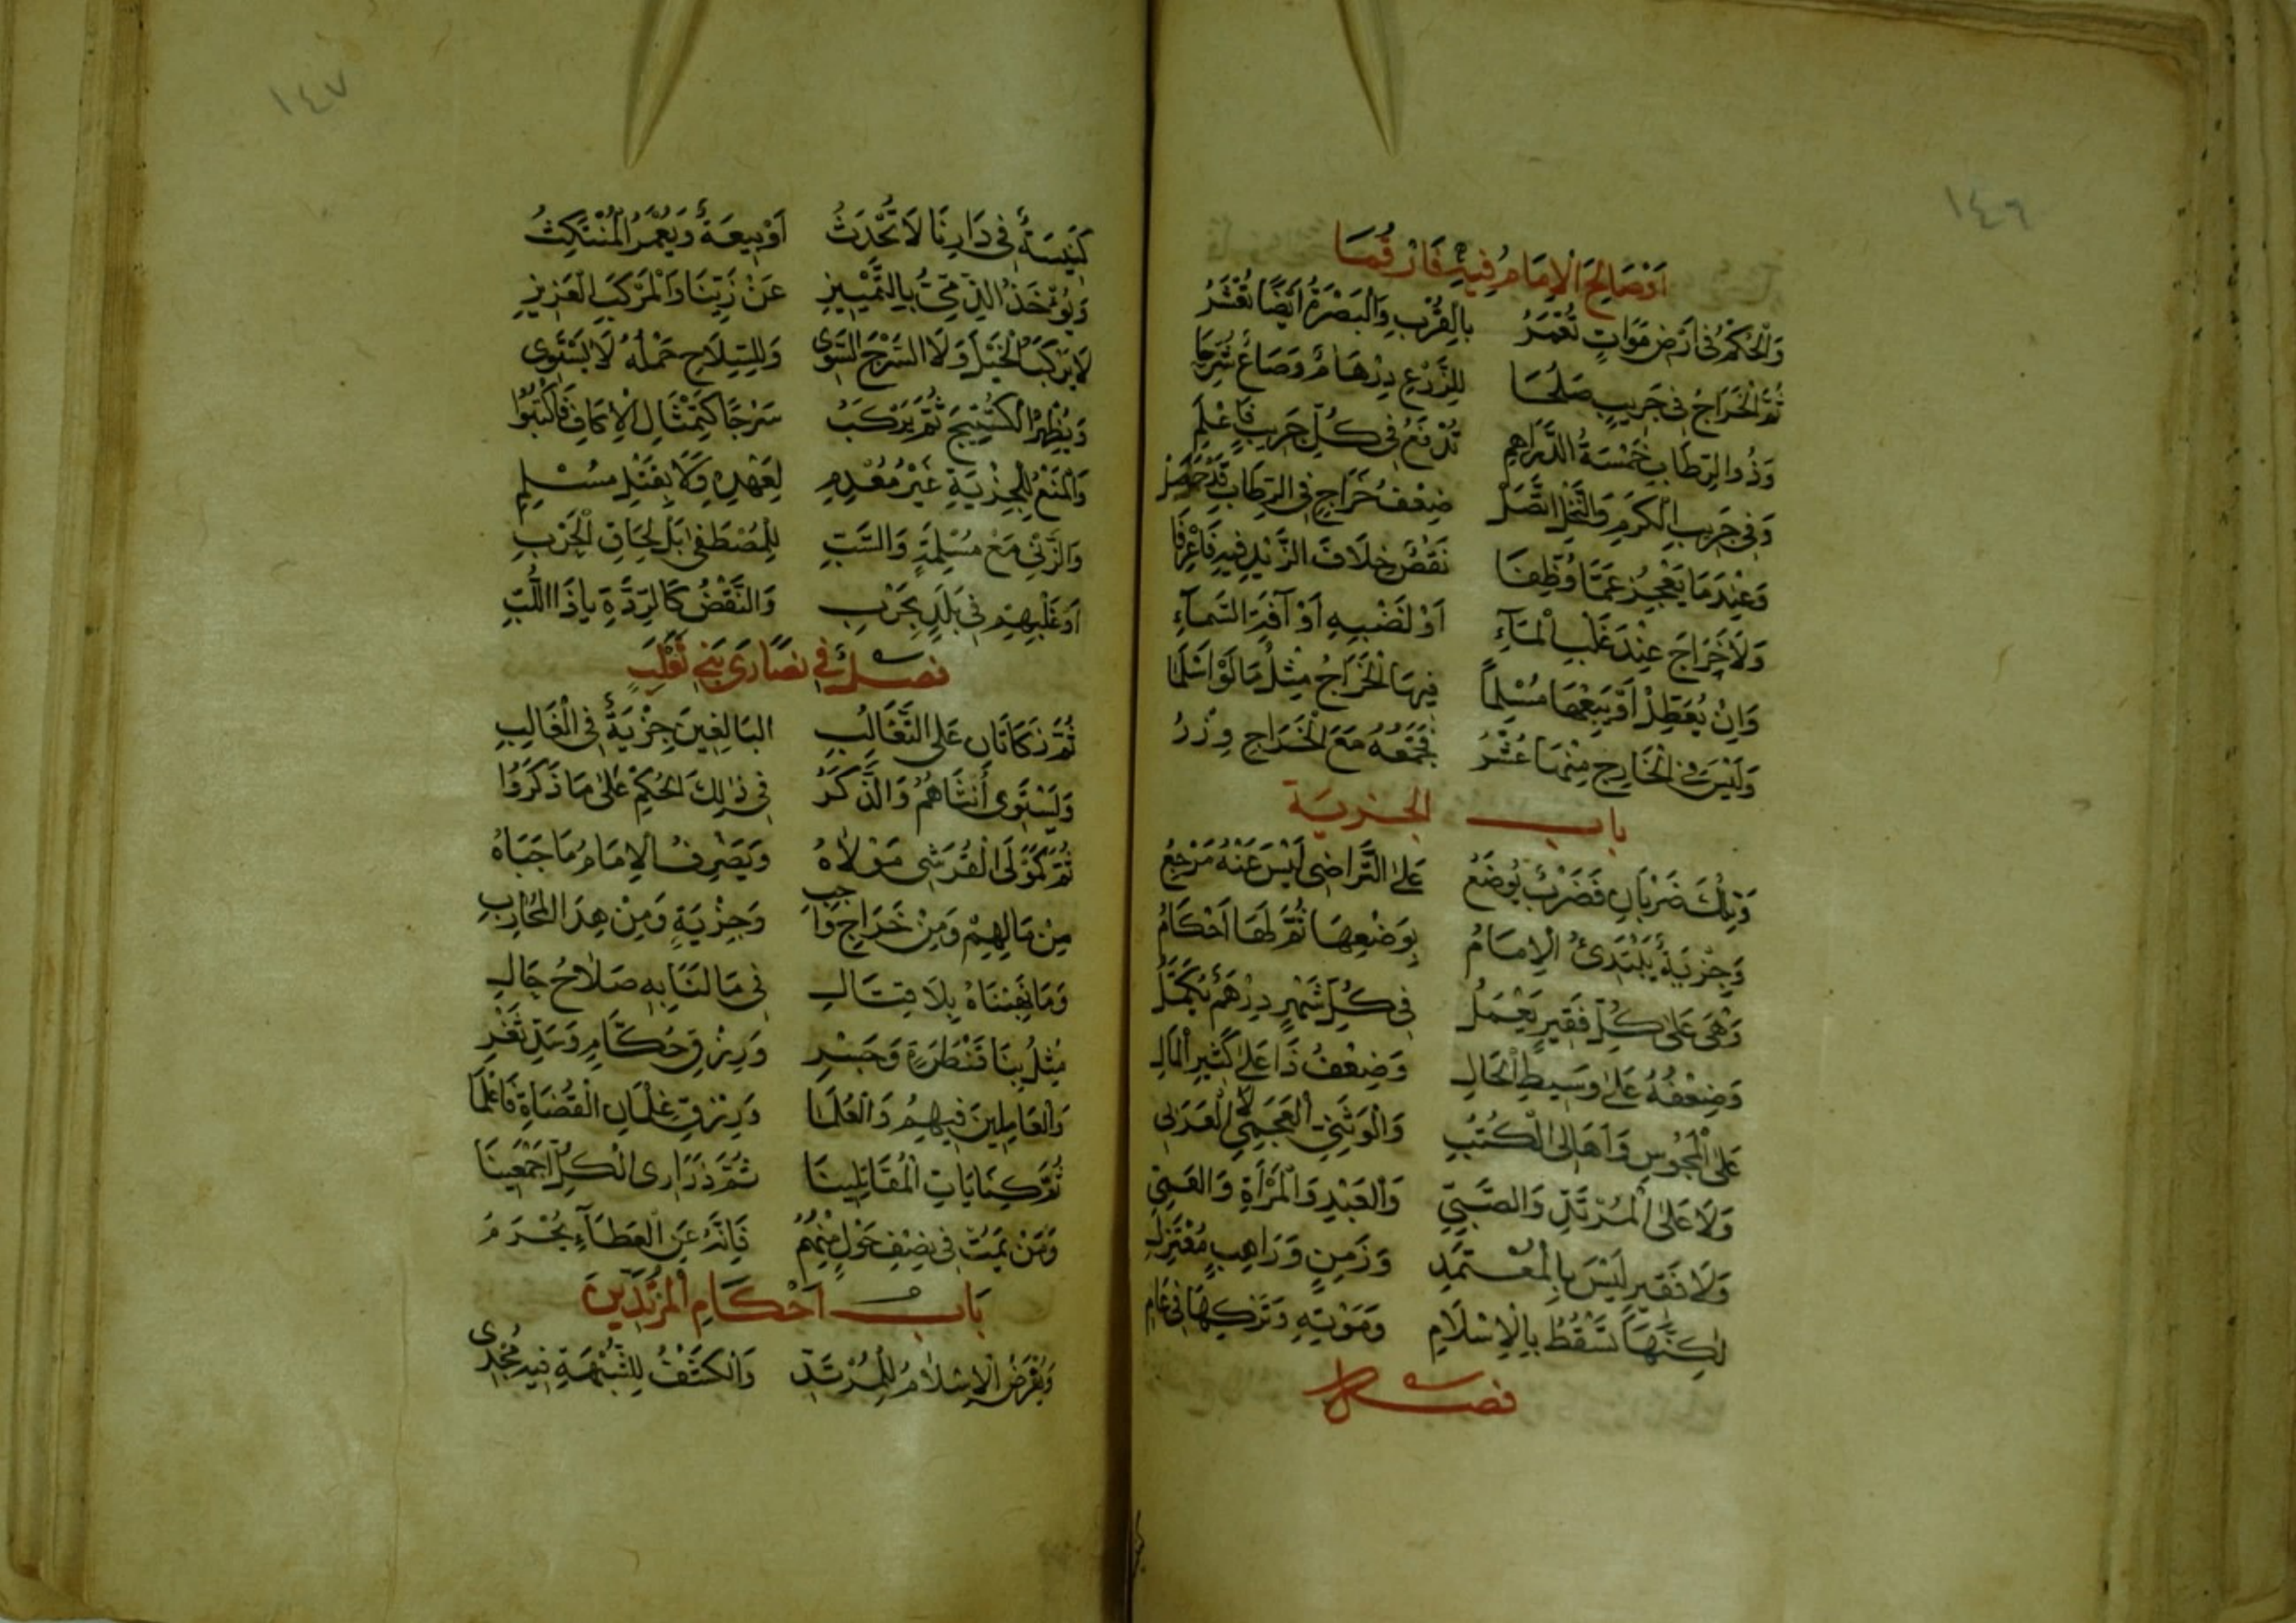 ١٤٦
اَوْصَالَحَ الْاِمَامُ فِيهِ فَارْقُمَا
وَالْحُكْمُ فِى اَرْضِ مَوَاتٍ تُعْمَرُ بِالْقُرْبِ وَالْبَصْرَةُ اَيْضًا تُعْشَرُ
ثُمَّ الْخَرَاجُ فِى جَرِيبٍ صَلُحَا لِلزَّرْعِ دِرْهَامٌ وَصَاعٌ شُرِحَا
وَذُو الرِّطَابِ خَمْسَةُ الدَّرَاهِمِ تُدْفَعُ فِى كُلِّ جَرِيبٍ فَاعْلَمِ
وَفِى جَرِيبِ الْكَرْمِ وَالنَّخْلِ اتَّصَلْ ضِعْفُ خَرَاجٍ فِى الرِّطَابِ قَدْ حَصَلْ
وَعِنْدَمَا يَعْجِزُ عَمَّا وُظِّفَا نَقْصٌ خِلَافَ الزَّيْدِ فِيهِ فَاعْرِفَا
وَلَا خَرَاجَ عِنْدَ غَلْبِ الْمَآءِ اَوْ لَضْبِهِ اَوْ آفَةِ السَّمَآءِ
وَاِنْ يُعَطِّلْ اَوْ يَبِعْهَا مُسْلِماً فِيهَا الْخَرَاجُ مِثْلُ مَا لَوْ اَسْلَمَا
وَلَيْسَ فِى الْخَارِجِ مِنْهَا عُشْرُ فَجَمْعُهُ مَعَ الْخَرَاجِ وِزْرُ
باب الجزية
وَتِلْكَ ضَرْبَانِ فَضَرْبٌ يُوضَعُ عَلَى التَّرَاضِى لَيْسَ عَنْهُ مَرْجِعُ
وَجِزْيَةٌ يَبْتَدِئُ الْاِمَامُ بِوَضْعِهَا ثُمَّ لَهَا اَحْكَامُ
وَهْىَ عَلَى كُلِّ فَقِيرٍ يَعْمَلُ فِى كُلِّ شَهْرٍ دِرْهَمٌ يُكَمَّلُ
وَضِعْفُهُ عَلَى وَسِيطِ الْحَالِ وَضِعْفُ ذَا عَلَى كَثِيرِ الْمَالِ
عَلَى الْمَجُوسِ وَاَهَالِى الْكُتُبِ وَالْوَثَنِىِّ الْعَجَمِىِّ لَا الْعَرَبِى
وَلَا عَلَى الْمُرْتَدِّ وَالصَّبِىِّ وَالْعَبْدِ وَالْمَرْأَةِ وَالْعَمِىِّ
وَلَا فَقِيرٍ لَيْسَ بِالْمُعْتَمِدِ وَزَمِنٍ وَرَاهِبٍ مُعْتَزِلِ
لٰكِنَّهَا تَسْقُطُ بِالْاِسْلَامِ وَمَوْتِهِ وَتَرْكِهَا فِى عَامِ
فصل
١٤٧
كَنِيسَةٌ فِى دَارِنَا لَا تُحْدَثُ اَوْ بِيعَةٌ وَيُعْمَرُ الْمُنْتَكِثُ
وَيُؤْخَذُ الذِّمِّىُّ بِالتَّمْيِيزِ عَنْ زَيِّنَا وَالْمَرْكَبِ الْعَزِيزِ
لَا يَرْكَبُ الْخَيْلَ وَلَا السَّرْجَ السَّوِى وَلِلسِّلَاحِ حَمْلُهُ لَا يَسْتَوِى
وَيُظْهِرُ الْكُسْتِيجَ ثُمَّ يَرْكَبُ سَرْجًا كَتِمْثَالِ الْاِكَافِ فَاكْتُبُوا
وَالْمَنْعُ لِلْجِزْيَةِ غَيْرُ مُعْدِمِ لِعَهْدِهِ وَلَا بِقَتْلِ مُسْلِمِ
وَالزَّنْىِ مَعْ مُسْلِمَةٍ وَالسَّبِّ لِلْمُصْطَفٰى بَلْ لِحَاقِ الْحَرْبِ
اَوْ غَلْبِهِمْ فِى بَلَدٍ بِحَرْبِ وَالنَّقْضُ كَالرِّدَّةِ يَا ذَا اللُّبِّ
فصل فى نصَارَى بَنِى تَغْلِبَ
ثُمَّ زَكَاتَانِ عَلَى التَّغَالِبِ الْبَالِغِينَ جِزْيَةٌ فِى الْغَالِبِ
وَيَسْتَوِى أُنْثَاهُمْ وَالذَّكَرُ فِى ذٰلِكَ الْحُكْمِ عَلَى مَا ذَكَرُوا
ثُمَّ كَمَوْلَى الْقُرَشِى مَوْلَاهُ وَيَصْرِفُ الْاِمَامُ مَا جَبَاهُ
مِنْ مَالِهِمْ وَمِنْ خَرَاجٍ وَاجِبِ وَجِزْيَةٍ وَمِنْ هِدَا الْمُحَارِبِ
وَمَا غَنِمْنَاهُ بِلَا قِتَالِ فِى مَا لَنَا بِهِ صَلَاحُ حَالِ
مِثْلُ بِنَا قَنْطَرَةٍ وَجَسْرِ وَرِزْقِ حُكَّامٍ وَسَدِّ ثَغْرِ
وَالْعَامِلِينَ فِيهِمُ وَالْعُلَمَا وَرِزْقِ غِلْمَانِ الْقُضَاةِ فَاعْلَمَا
ثُمَّ كِفَايَاتِ الْمُقَاتِلِينَا ثُمَّ ذَرَارِى الْكُلِّ اَجْمَعِينَا
وَمَنْ يَمُتْ فِى نِصْفِ حَوْلٍ مِنْهُمُ فَاِنَّهُ عَنِ الْعَطَآءِ يُحْرَمُ
بَابُ اَحْكَامِ الْمُرْتَدِّينَ
وَيُعْرَضُ الْاِسْلَامُ لِلْمُرْتَدِّ وَالْكَشْفُ لِلشُّبْهَةِ فِيهِ مُجْدِى